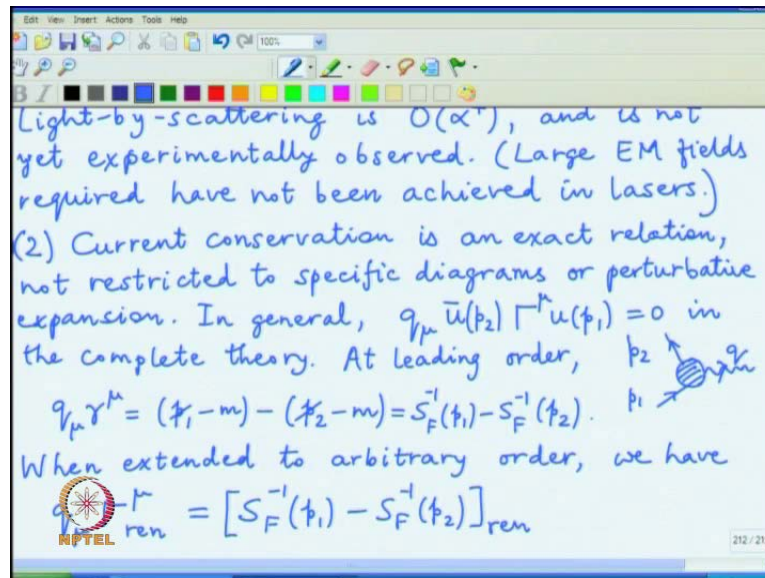 Edit View Insert Actions Tools Help
100%
Light-by-scattering is O(α⁴), and is not
yet experimentally observed. (Large EM fields
required have not been achieved in lasers.)
(2) Current conservation is an exact relation,
not restricted to specific diagrams or perturbative
expansion. In general, q_μ ū(p₂) Γ^μ u(p₁) = 0 in
the complete theory. At leading order,
p₂ q
p₁
q_μ γ^μ = (p̸₁-m) - (p̸₂-m) = S_F^{-1}(p₁) - S_F^{-1}(p₂).
When extended to arbitrary order, we have
μ ren = [S_F^{-1}(p₁) - S_F^{-1}(p₂)]_ren
NPTEL
212 / 21